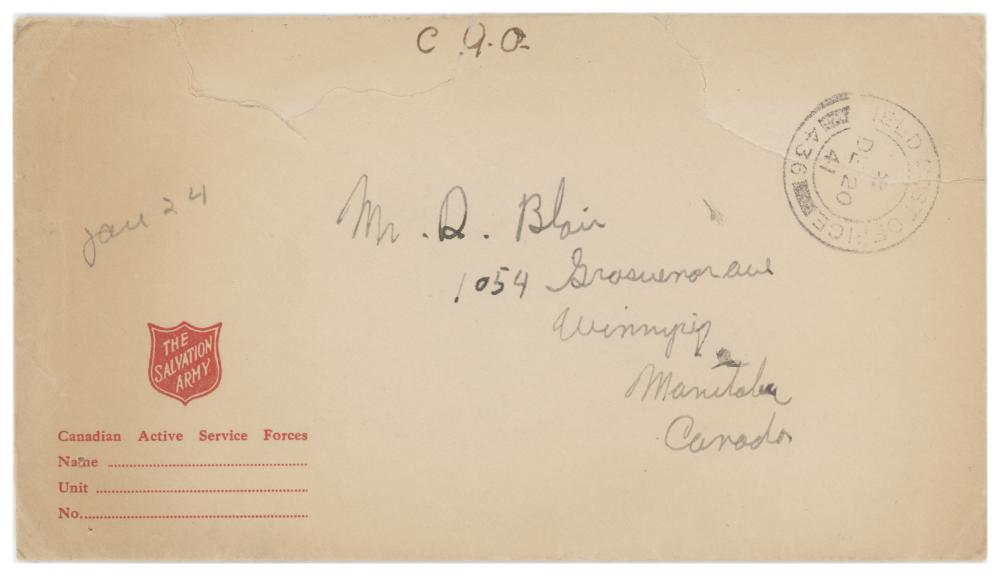 C.A.O.
FIELD POST OFFICE
436
DE 20
41
Jan 24
Mr. D. Blair
1054 Grosvenor ave
Winnipeg
Manitoba
Canada
THE
SALVATION
ARMY
Canadian Active Service Forces
Name
Unit
No.